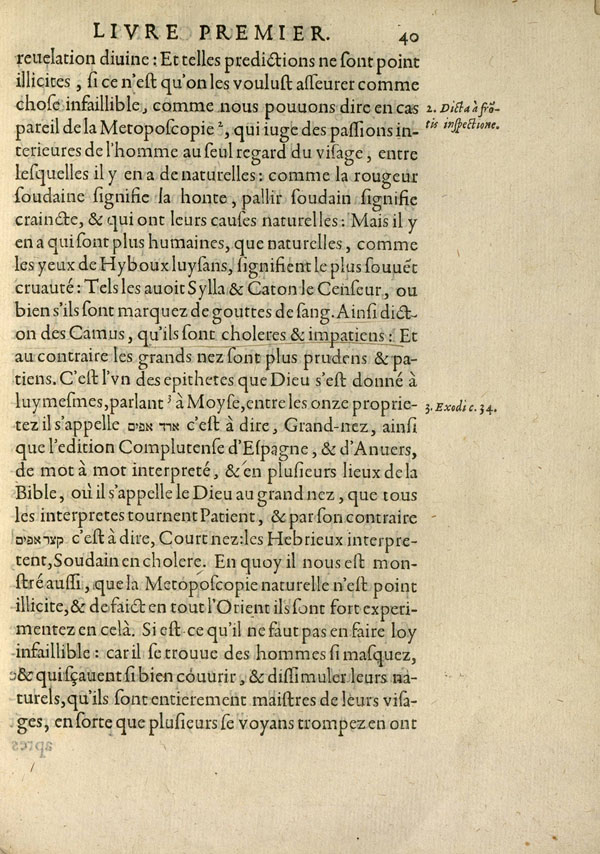 LIVRE PREMIER. 40
reuelation diuine: Et telles predictions ne ſont point
illicites, ſi ce n'eſt qu'on les vouluſt aſſeurer comme
choſe infaillible, comme nous pouuons dire en cas
2. Dicta à frō-
pareil de la Metopoſcopie ², qui iuge des paſſions in-
tis inſpectione.
terieures de l'homme au ſeul regard du viſage, entre
leſquelles il y en a de naturelles: comme la rougeur
ſoudaine ſignifie la honte, pallir ſoudain ſignifie
craincte, & qui ont leurs cauſes naturelles: Mais il y
en a qui ſont plus humaines, que naturelles, comme
les yeux de Hyboux luyſans, ſignifient le plus ſouuēt
cruauté: Tels les auoit Sylla & Caton le Cenſeur, ou
bien s'ils ſont marquez de gouttes de ſang. Ainſi dict-
on des Camus, qu'ils ſont choleres & impatiens: Et
au contraire les grands nez ſont plus prudens & pa-
tiens. C'eſt l'vn des epithetes que Dieu s'eſt donné à
luymeſmes, parlant ³ à Moyſe, entre les onze proprie-
3. Exodi c. 34.
tez il s'appelle ארד אפים c'eſt à dire, Grand-nez, ainſi
que l'edition Complutenſe d'Eſpagne, & d'Anuers,
de mot à mot interpreté, & en pluſieurs lieux de la
Bible, où il s'appelle le Dieu au grand nez, que tous
les interpretes tournent Patient, & par ſon contraire
קצר אפים c'eſt à dire, Court nez: les Hebrieux interpre-
tent, Soudain en cholere. En quoy il nous eſt mon-
ſtré auſſi, que la Metopoſcopie naturelle n'eſt point
illicite, & de faict en tout l'Orient ils ſont fort experi-
mentez en celà. Si eſt ce qu'il ne faut pas en faire loy
infaillible: car il ſe trouue des hommes ſi maſquez,
& qui ſçauent ſi bien couurir, & diſſimuler leurs na-
turels, qu'ils ſont entierement maiſtres de leurs viſa-
ges, en ſorte que pluſieurs ſe voyans trompez en ont
apres